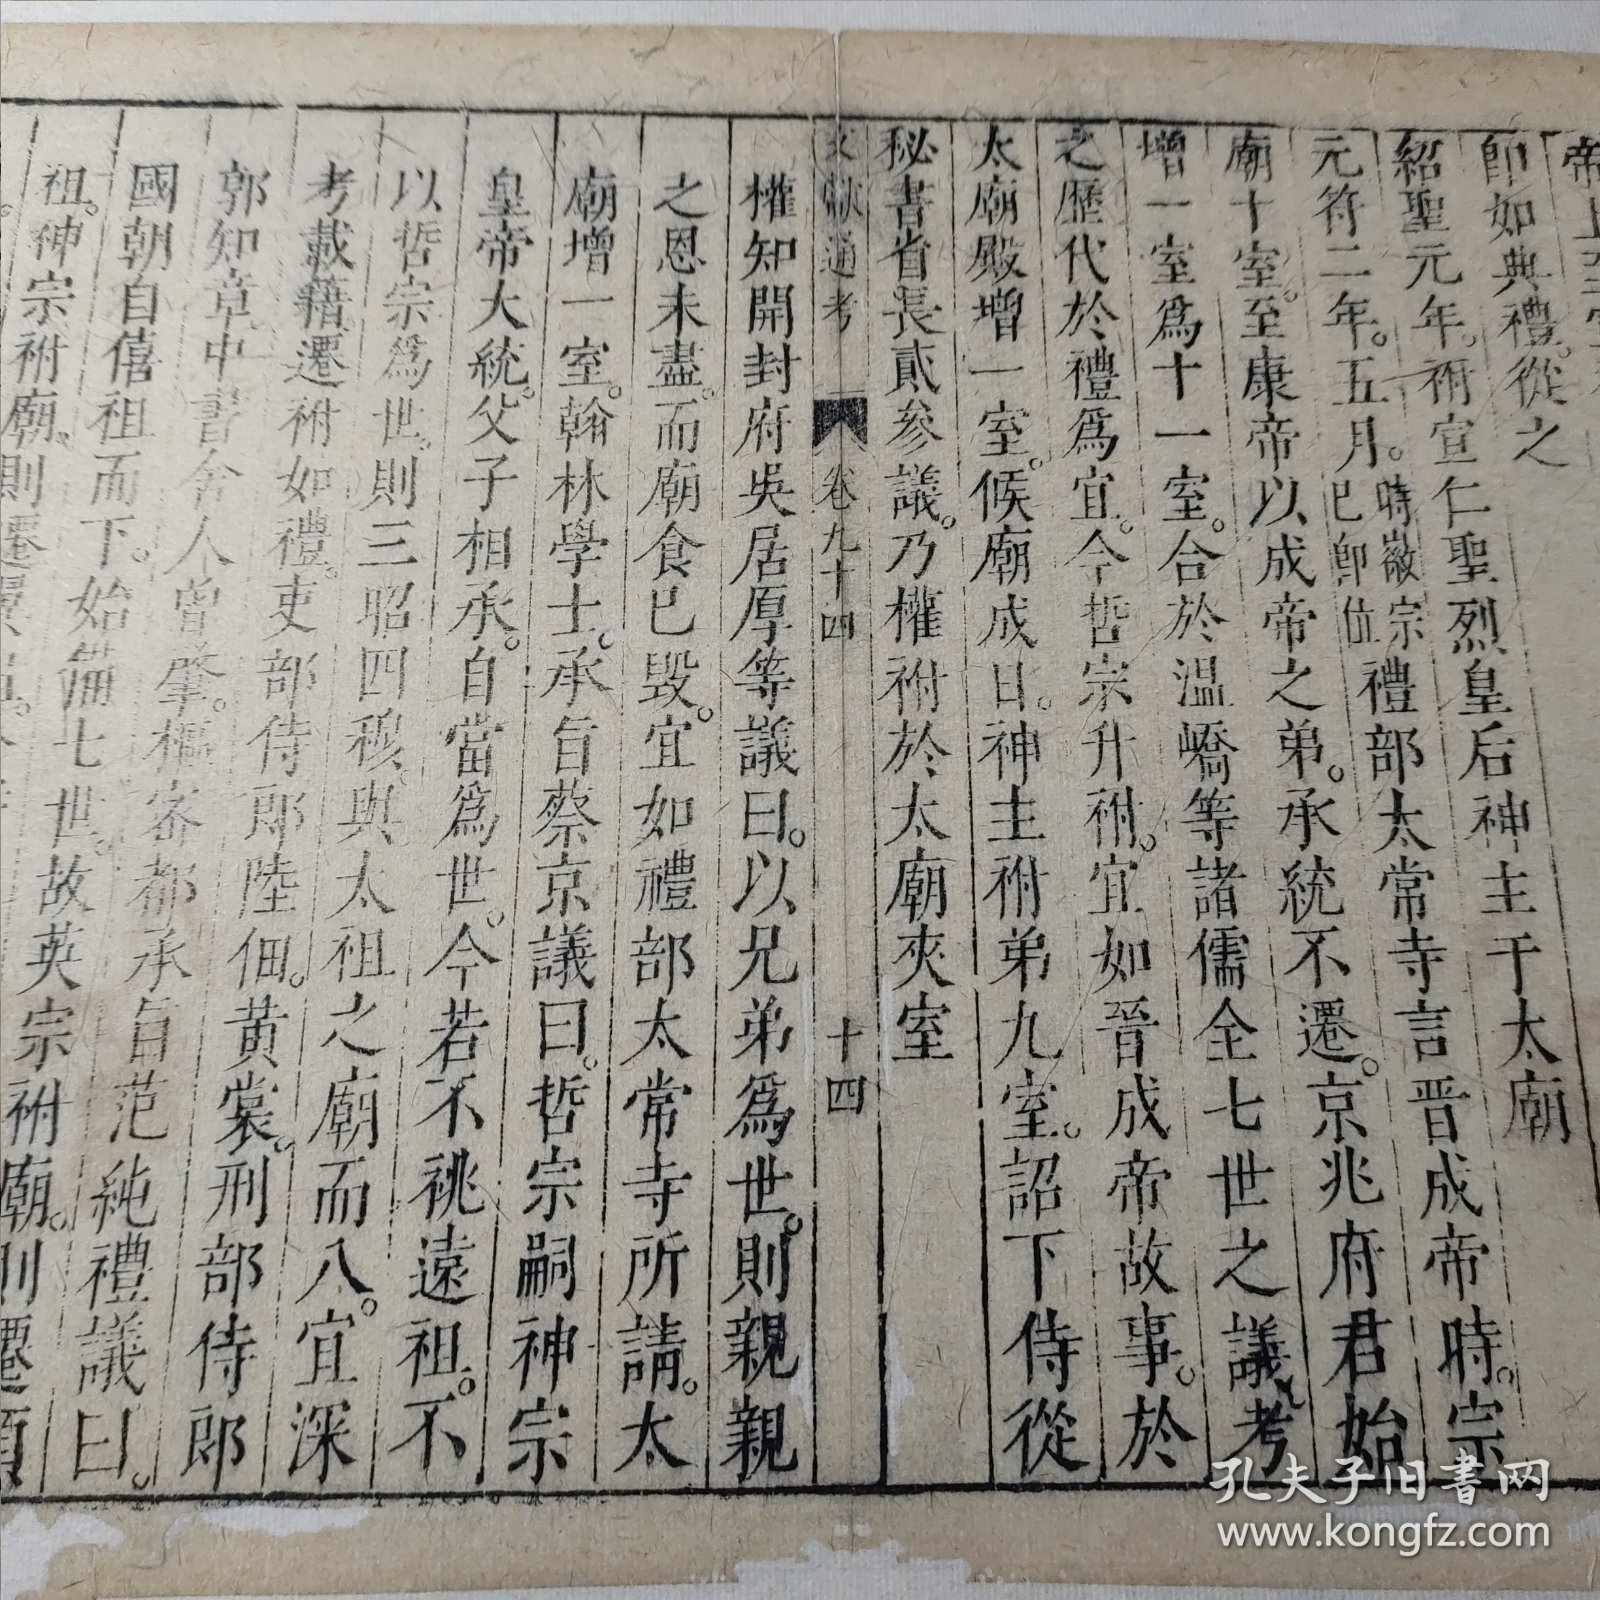 帝上
卽如典禮。從之
紹聖元年。祔宣仁聖烈皇后神主于太廟
元符二年。五月。時徽宗已卽位禮部太常寺言晋成帝時。宗
廟十室。至康帝以成帝之弟。承統不遷。京兆府君始
增一室爲十一室。合於溫嶠等諸儒全七世之議。考
之歷代於禮爲宜。今哲宗升祔。宜如晋成帝故事。於
太廟殿增一室。候廟成日。神主祔弟九室。詔下侍從
秘書省長貳參議。乃權祔於太廟夾室
文獻通考 卷九十四 十四
權知開封府吳居厚等議曰。以兄弟爲世。則親親
之恩未盡。而廟食已毀。宜如禮部太常寺所請。太
廟增一室。翰林學士。承旨蔡京議曰。哲宗嗣神宗
皇帝大統。父子相承。自當爲世。今若不祧遠祖。不
以哲宗爲世。則三昭四穆與太祖之廟而八。宜深
考載籍遷祔如禮。吏部侍郎陸佃。黃裳。刑部侍郎
郭知章。中書舍人曾肇。樞密都承旨范純禮議曰。
國朝自僖祖而下。始備七世。故英宗祔廟。則遷順
祖。神宗祔廟。則遷翼祖。
孔夫子旧书网
www.kongfz.com